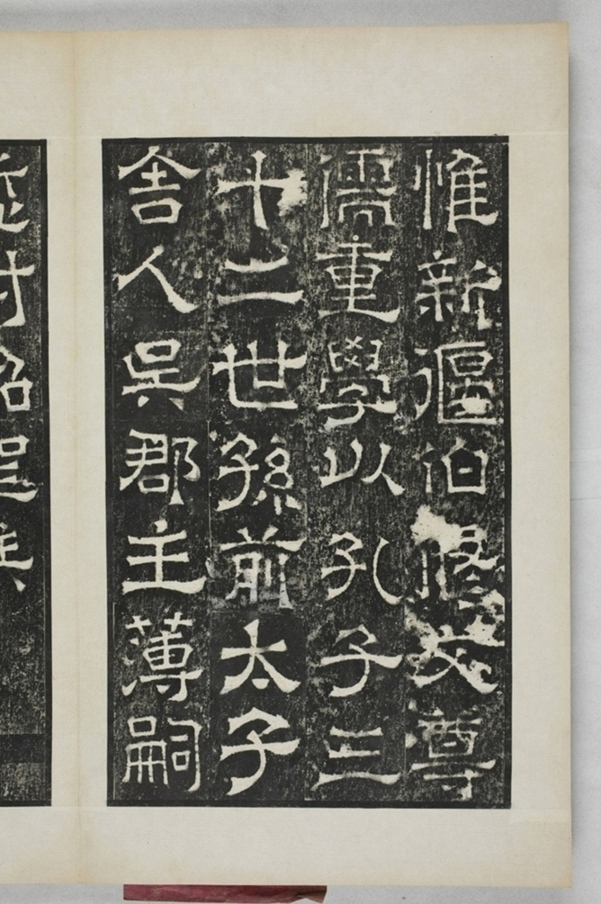 惟新偃伯脩文尊
儒重學以孔子三
十二世孫前太子
舍人吳郡主薄嗣